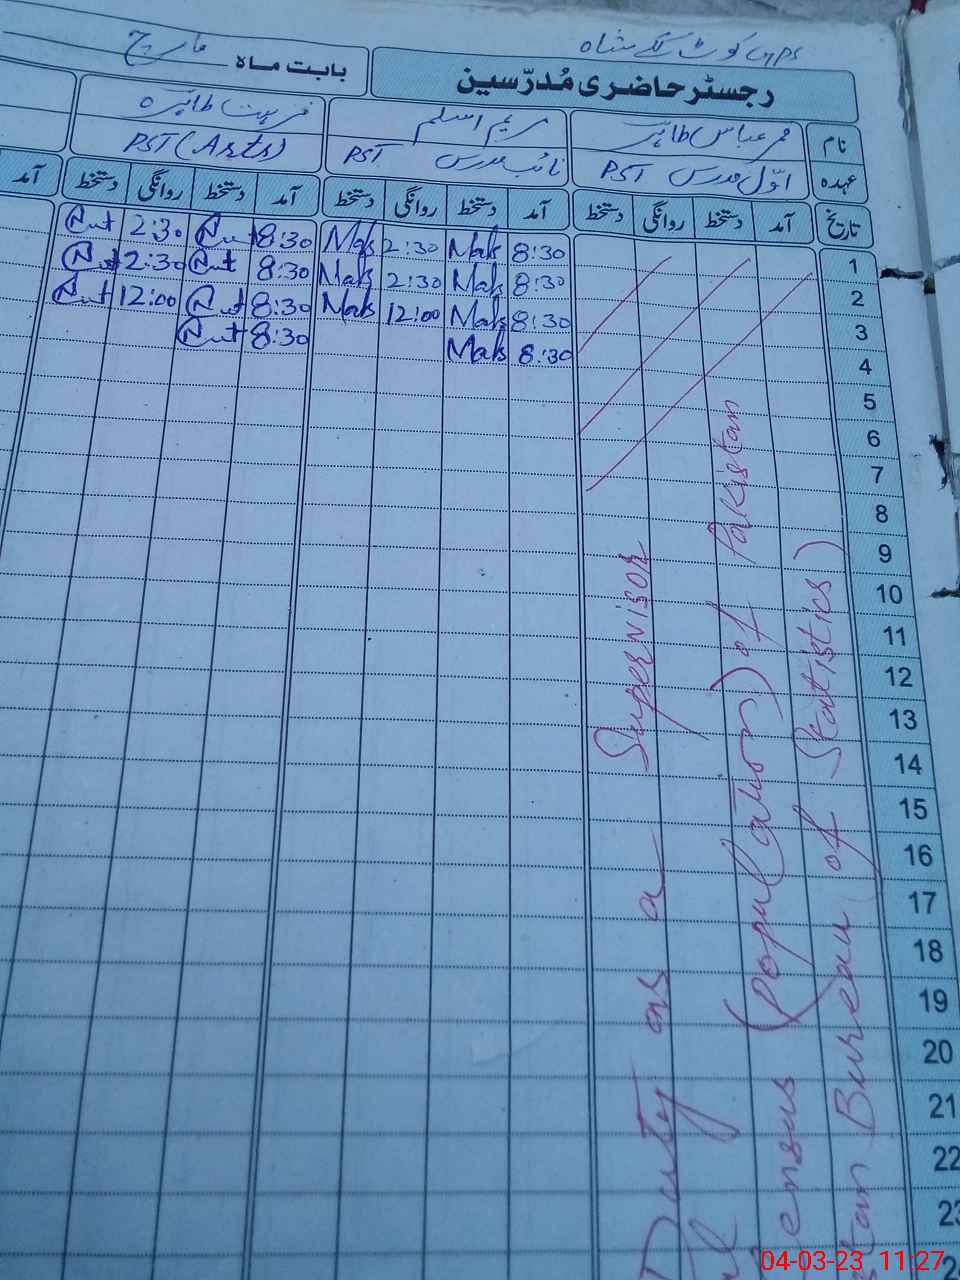 GPS کوٹ
رجسٹر حاضری مُدرّسین
بابت ماہ مارچ
نام
مریم اسلم
عہدہ
اوّل مدرس PST
نائب مدرس PST
PST (Arts)
تاریخ آمد دستخط روانگی دستخط آمد دستخط روانگی دستخط آمد دستخط روانگی دستخط آمد
1 8:30 Mak 2:30 Mak 8:30 2:30
2 8:30 Mak 2:30 Mak 8:30 2:30
3 8:30 Mak 12:00 Mak 8:30 12:00
4 8:30 Mak 8:30
5
6
7
8
9
10
11
12
13
14
15
16
17
18
19
20
21
22
23
Duty as a Supervisor
(Population) of Pakistan
Bureau of Statistics)
04-03-23 11:27